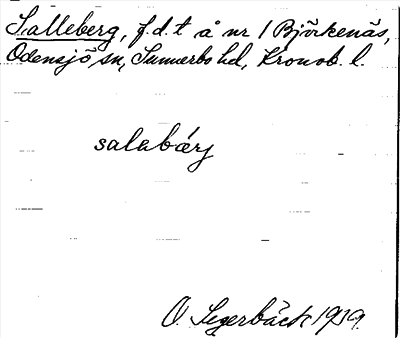 Salleberg, f.d. t å nr 1 Björkenäs,
Odensjö sn, Sunnerbo hd, Kronob. l.
salabærj
O. Segerbäck 1939.